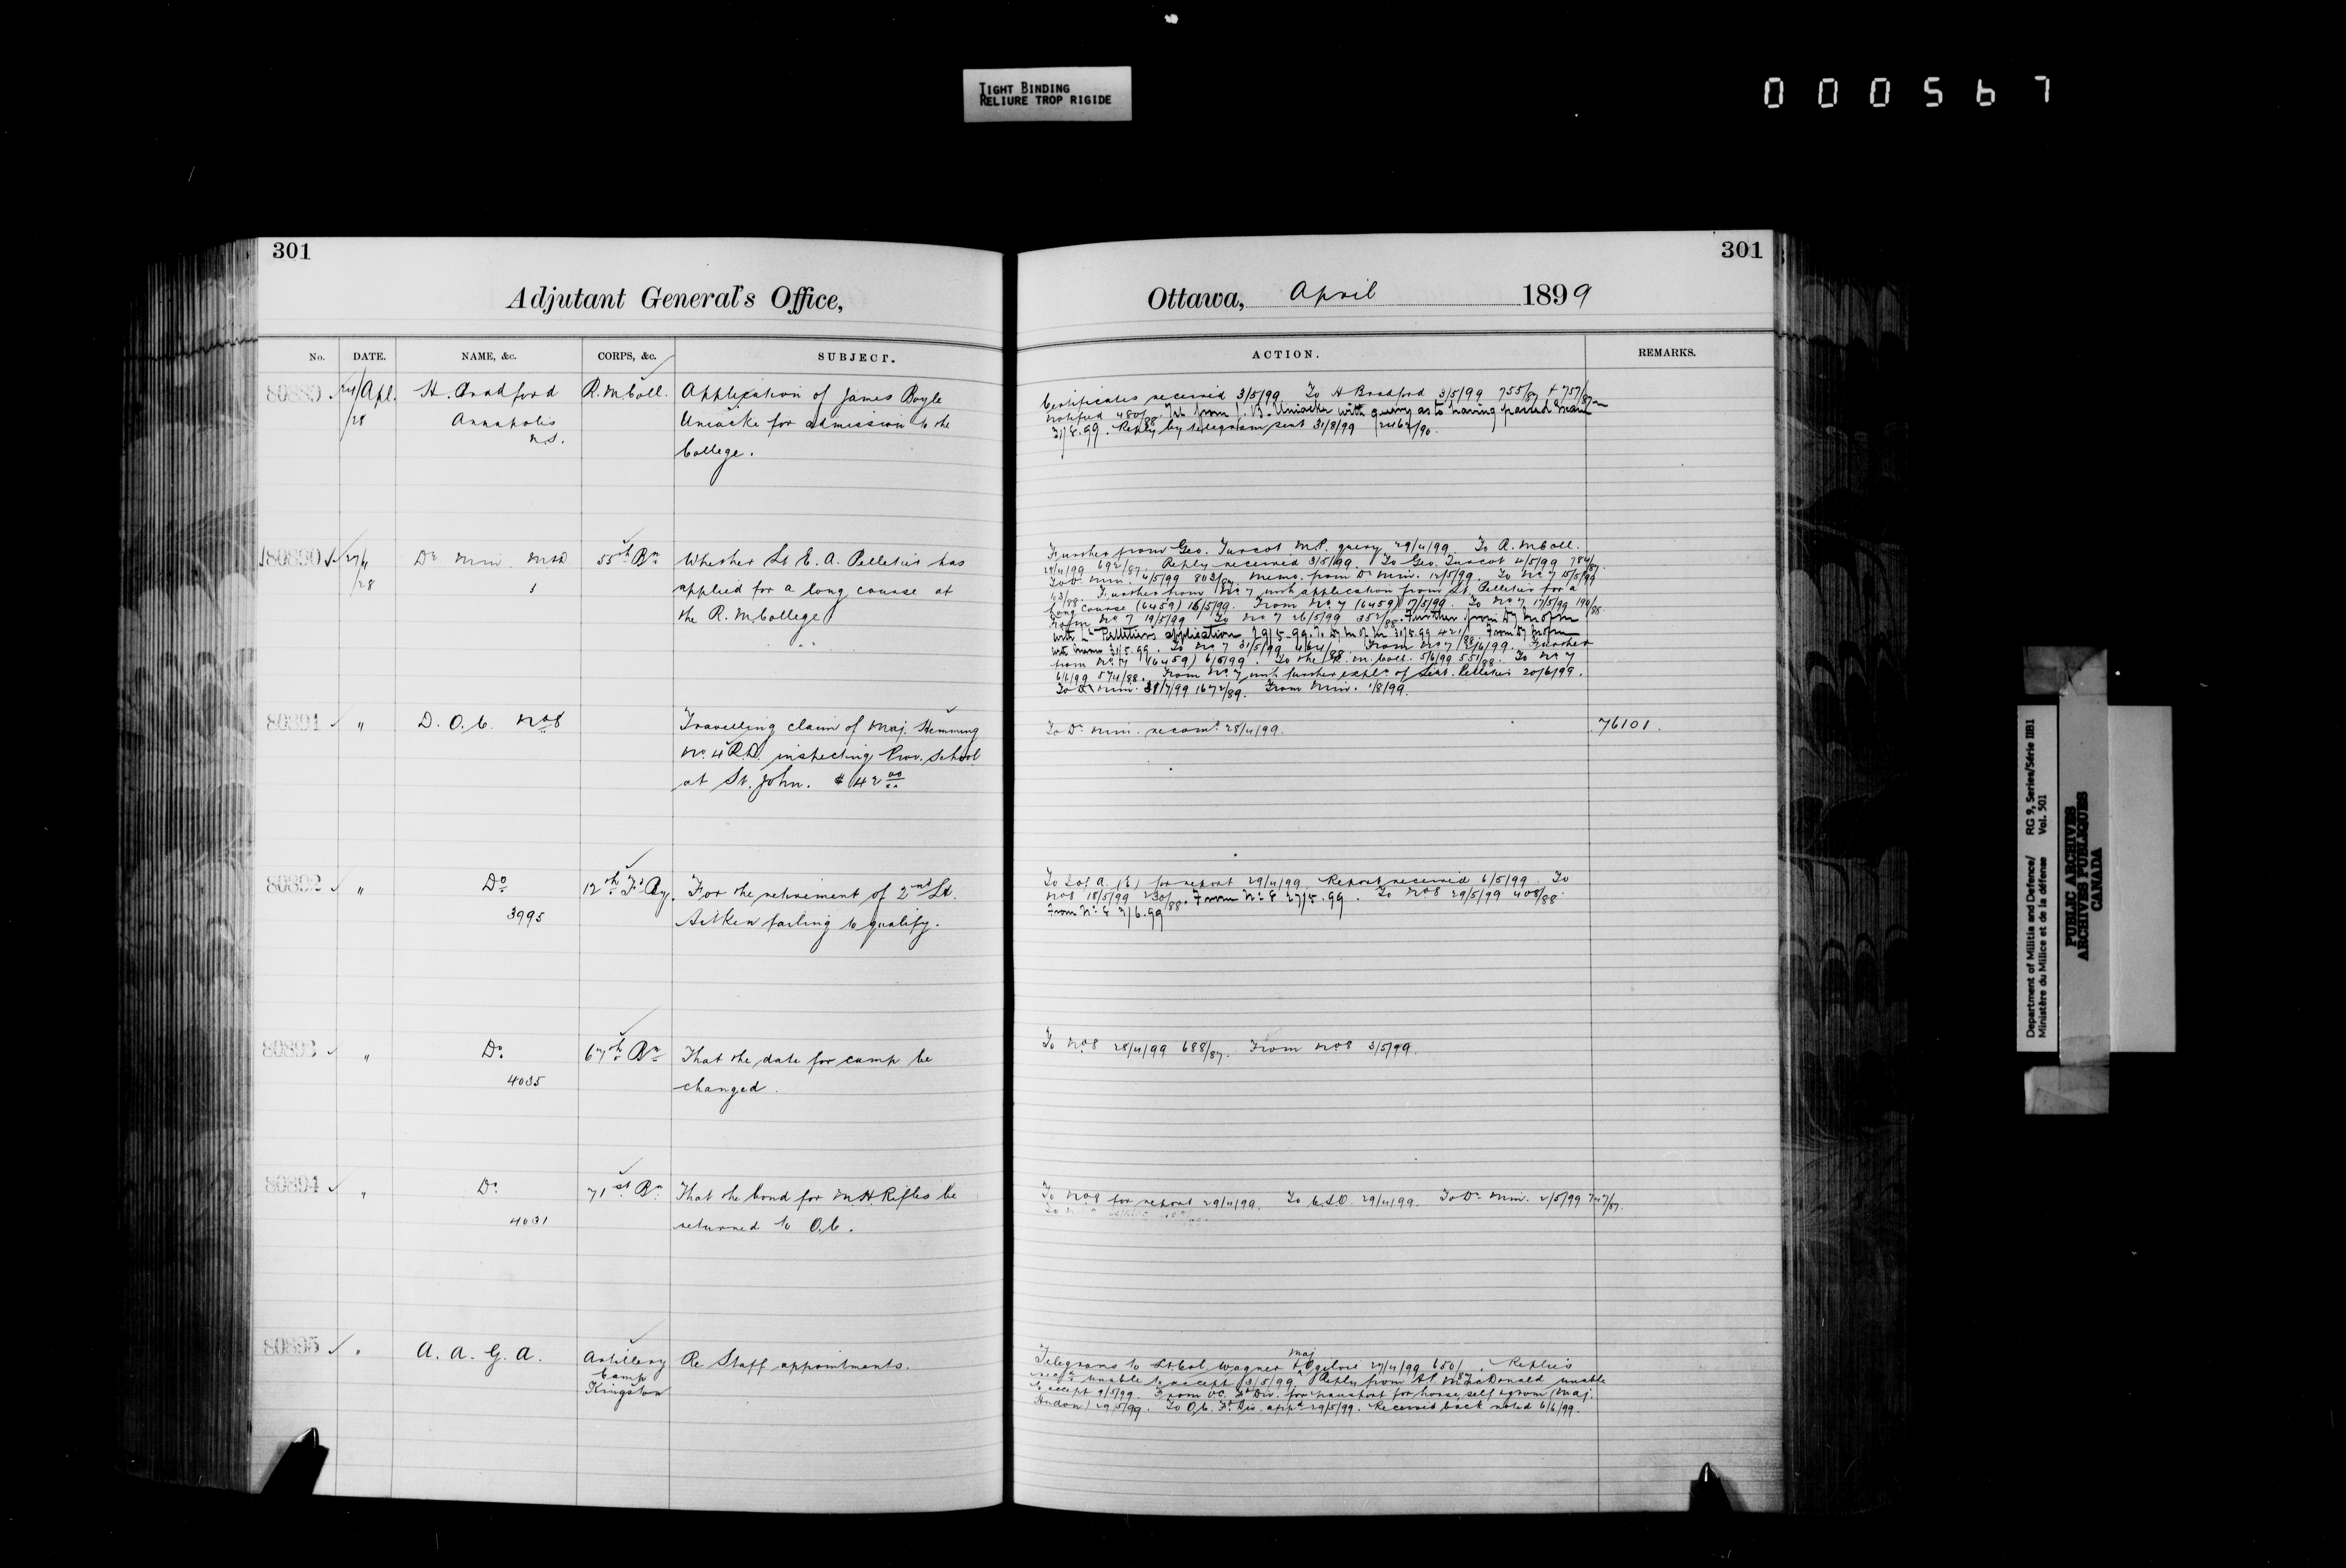 TIGHT BINDING
RELIURE TROP RIGIDE
000567
301
Adjutant General's Office,
No. DATE. NAME, &c. CORPS, &c. SUBJECT.
80889 24/Apl. H. Bradford R.M.Coll. Application of James Boyle
/28 Annapolis Uniacke for admission to the
N.S. College.
80890 27/" Dr. Min. M&D. 55th Bn. Whether Lt E. A. Pelletier has
/28 applied for a long course at
the R. M. College
80891 " D. O. C. No 8 Travelling claim of Maj. Hemming
No. 4 R.D. inspecting Prov. School
at St. John. $42 00
80892 " Do 12th Fd. By. For the retirement of 2nd Lt.
3995 Aitken failing to qualify.
80893 " Do. 67th Bn That the date for camp be
4035 changed.
80894 " Do. 71st Bn That the bond for M.H. Rifles be
4031 returned to O.C.
80895 " A. A. G. A. Artillery Re Staff appointments.
Camp
Kingston
301
Ottawa, April 1899
ACTION. REMARKS.
Certificates received 3/5/99 To H Bradford 3/5/99 755/87 + 757/87
notified 480/88. Tel. from J. B. Uniacke with query as to having passed exam
31/8.99. Reply by telegram sent 31/8/99 2462/90.
Further from Geo. Turcot M.P. query 29/4/99. To R. M Coll.
29/4/99 692/87. Reply received 3/5/99. To Geo. Turcot 4/5/99 784/87.
To Dr. Min. 4/5/99 803/87. Memo. from Dr Min. 12/5/99. To No 7 15/5/99
103/88. Further from No. 7 with application from Lt. Pelletier for a
long course (6459) 16/5/99. From No. 7 (6459) 17/5/99. To No 7 17/5/99 190/88
From No 7 19/5/99 To No 7 26/5/99 352/88. Further from Dy M of M
with Lt. Pelletier's application 29/5.99. To Dy M of M 31/5.99 421/88. From Dy M of M
with memo 31/5.99. To No 7 31/5/99 464/88. From No 7 2/6/99. Further
from No. 7 (6459) 6/5/99. To the R. M. Coll. 5/6/99 551/88. To No 7
6/6/99 574/88. From No. 7 with further expln of Lieut. Pelletier 20/6/99.
To D Min. 31/7/99 1672/89. From Min. 1/8/99.
To Dr. Min. recomd. 28/4/99. 76101.
To I of A. (E) for report 29/4/99. Report received 6/5/99. To
No 8 18/5/99 230/88. From No. 8 27/5.99. To No 8 29/5/99 408/88
From No. 8 7/6.99
To No 8 28/4/99 688/87. From No 8 3/5/99.
To No 8 for report 29/4/99. To C.S.O. 29/4/99. To Dr. Min. 2/5/99 747/87.
Maj
Telegrams to Lt. Col. Wagner + Ogilvie 29/4/99 650/87. Replies
recd unable to accept 3/5/99 Reply from Lt. McDonald unable
to accept 9/5/99. From O.C. Fd Div. for transport for horse, self + groom (Maj.
Hudon) 29/5/99. To O.C. Fd. Div. appd 29/5/99. Received back noted 6/6/99.
Department of Militia and Defence/ RG 9, Series/Série IIB1
Ministère du Milice et de la défense Vol. 501
PUBLIC ARCHIVES
ARCHIVES PUBLIQUES
CANADA